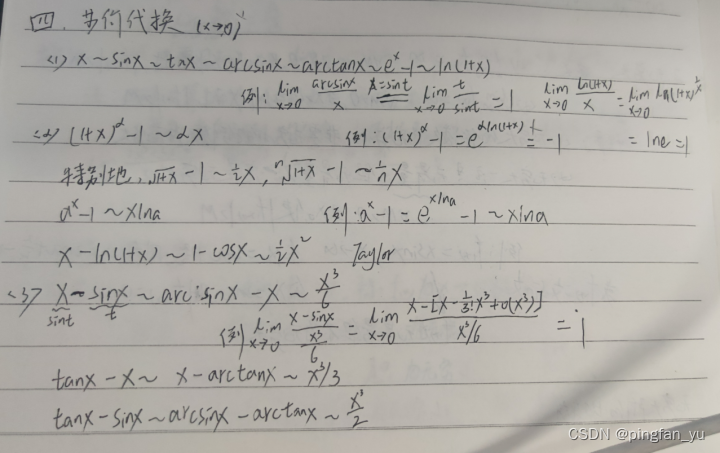 四. 等价代换 (x→0)
<1> x ~ sinx ~ tanx ~ arcsinx ~ arctanx ~ e^x-1 ~ ln(1+x)
例: lim_{x→0} arcsinx/x x=sint lim_{x→0} t/sint = 1 lim_{x→0} ln(1+x)/x = lim_{x→0} ln(1+x)^{1/x}
<2> (1+x)^α - 1 ~ αx 例: (1+x)^α - 1 = e^{αln(1+x)} - 1 = lne = 1
特别地, √(1+x) - 1 ~ 1/2 x, ⁿ√(1+x) - 1 ~ 1/n x
a^x - 1 ~ xlna 例: a^x - 1 = e^{xlna} - 1 ~ xlna
x - ln(1+x) ~ 1 - cosx ~ 1/2 x² Taylor
<3> x - sinx ~ arcsinx - x ~ x³/6
sint t
例 lim_{x→0} (x - sinx)/(x³/6) = lim_{x→0} (x - [x - 1/3! x³ + o(x³)])/(x³/6) = 1
tanx - x ~ x - arctanx ~ x³/3
tanx - sinx ~ arcsinx - arctanx ~ x³/2
CSDN @pingfan_yu